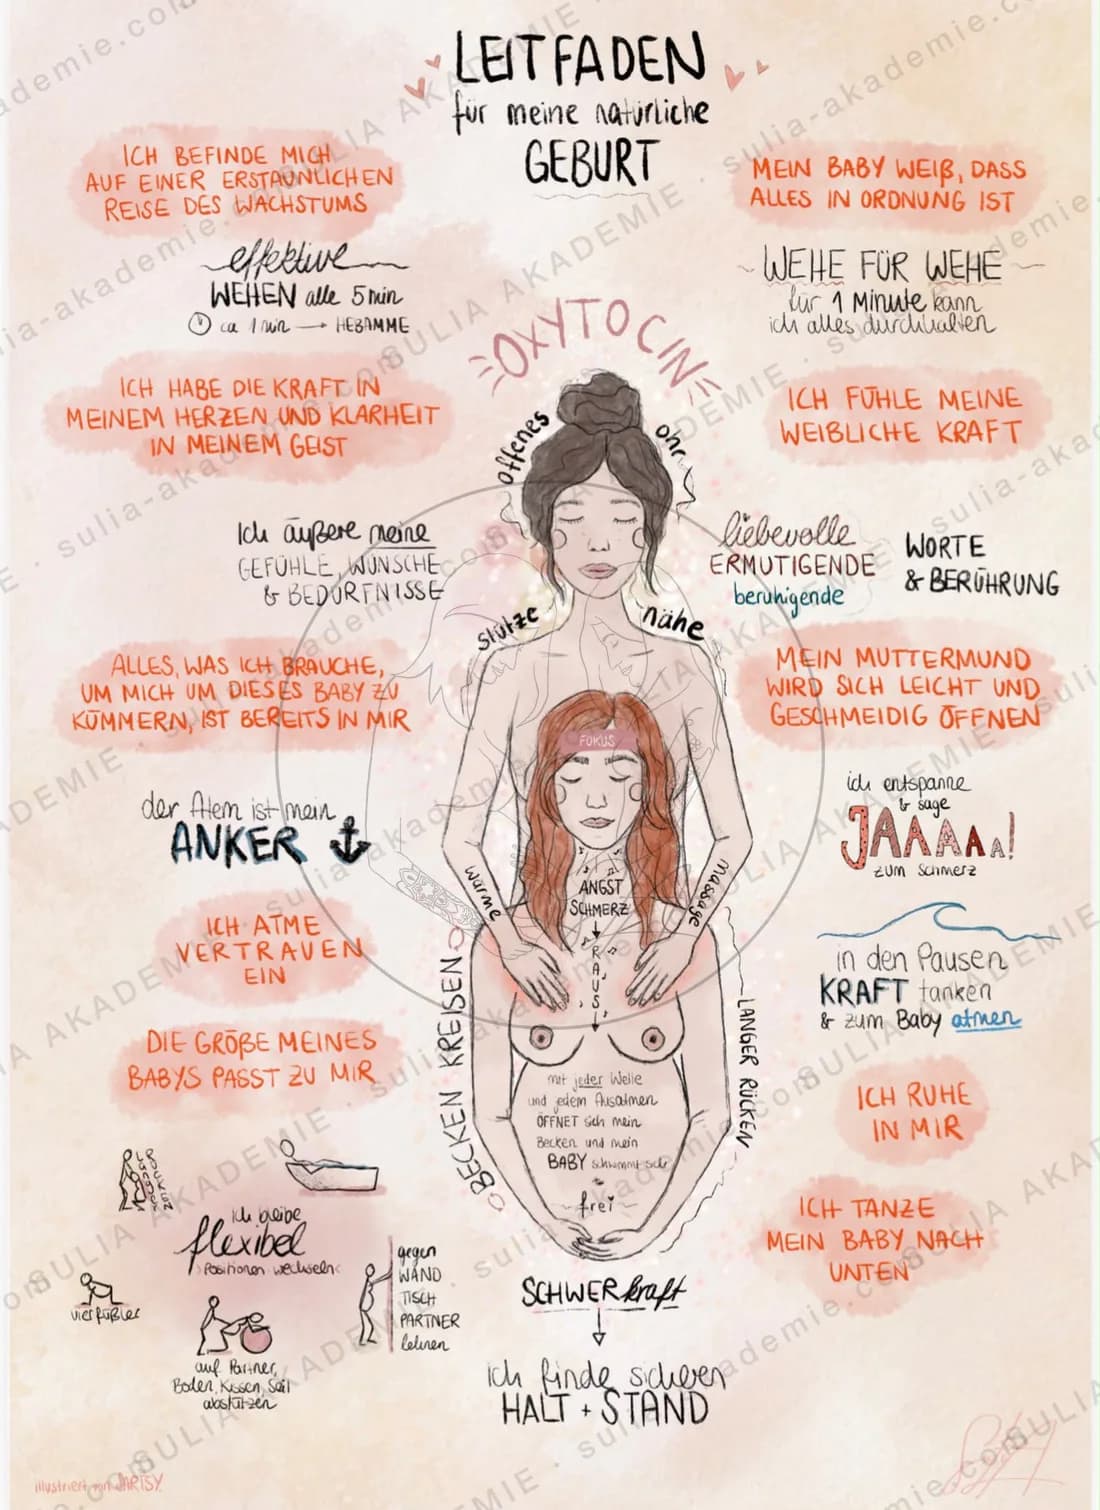 LEITFADEN
für meine natürliche
GEBURT
ICH BEFINDE MICH
AUF EINER ERSTAUNLICHEN
REISE DES WACHSTUMS
MEIN BABY WEIß, DASS
ALLES IN ORDNUNG IST
effektive
WEHEN alle 5 min
ca 1 min → HEBAMME
WEHE FÜR WEHE
für 1 Minute kann
ich alles durchhalten
OXYTOCIN
ICH HABE DIE KRAFT IN
MEINEM HERZEN UND KLARHEIT
IN MEINEM GEIST
ICH FÜHLE MEINE
WEIBLICHE KRAFT
offenes
ohr
Ich äußere meine
GEFÜHLE, WÜNSCHE
& BEDÜRFNISSE
liebevolle
ERMUTIGENDE
beruhigende
WORTE
& BERÜHRUNG
stütze
nähe
ALLES, WAS ICH BRAUCHE,
UM MICH UM DIESES BABY ZU
KÜMMERN, IST BEREITS IN MIR
MEIN MUTTERMUND
WIRD SICH LEICHT UND
GESCHMEIDIG ÖFFNEN
FOKUS
der Atem ist mein
ANKER
ich entspanne
& sage
JAAAAA!
zum Schmerz
wärme
massage
ANGST
SCHMERZ
RAUS
ICH ATME
VERTRAUEN
EIN
in den Pausen
KRAFT tanken
& zum Baby atmen
BECKEN KREISEN
LANGER RÜCKEN
DIE GRÖßE MEINES
BABYS PASST ZU MIR
mit jeder Welle
und jedem Ausatmen
ÖFFNET sich mein
Becken und mein
BABY schwimmt sich
frei
ICH RUHE
IN MIR
ICH TANZE
MEIN BABY NACH
UNTEN
Ich bleibe
flexibel
Positionen wechseln
vierfüßler
gegen
WAND
TISCH
PARTNER
lehnen
auf Partner,
Boden, Kissen, Seil
abstützen
SCHWERkraft
ich finde sicheren
HALT + STAND
illustriert von JARTSY
SULIA AKADEMIE · sulia-akademie.com